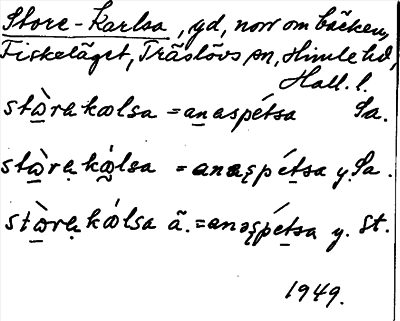 Store-Karlsa, yd, norr om bäcken,
Fiskeläget, Träslövs sn, Himle hd,
Hall. l.
stὼ̲rạ kωlsa = an̲aspétsa Sa.
stὼ̲rạ kώ̲lsa = anaʂpé̲tsa y. Sa.
stὼ̲rạ kώlsa ã. = anəʂpé̲tsa y. St.
1949.